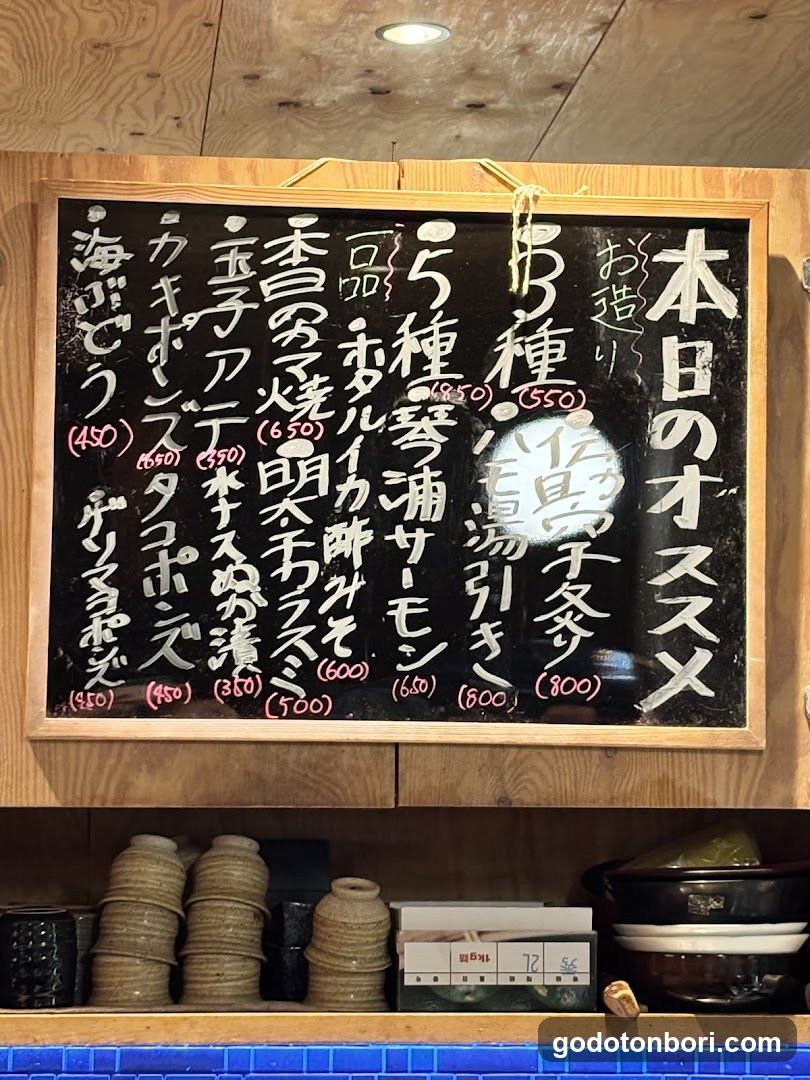 本日のオススメ
お造り
3種
(550)
伝助穴子炙り
(800)
ハモ湯引き
(800)
5種
(850)
琴浦サーモン
(650)
一品
ホタルイカ酢みそ
(600)
本日のカマ焼
(650)
明太子カラスミ
(500)
玉子アテ
(350)
水ナスぬか漬
(350)
カキポンズ
(650)
タコポンズ
(450)
海ぶどう
(450)
ゲソマヨポンズ
(450)
1kg詰
2L
秀
godotonbori.com